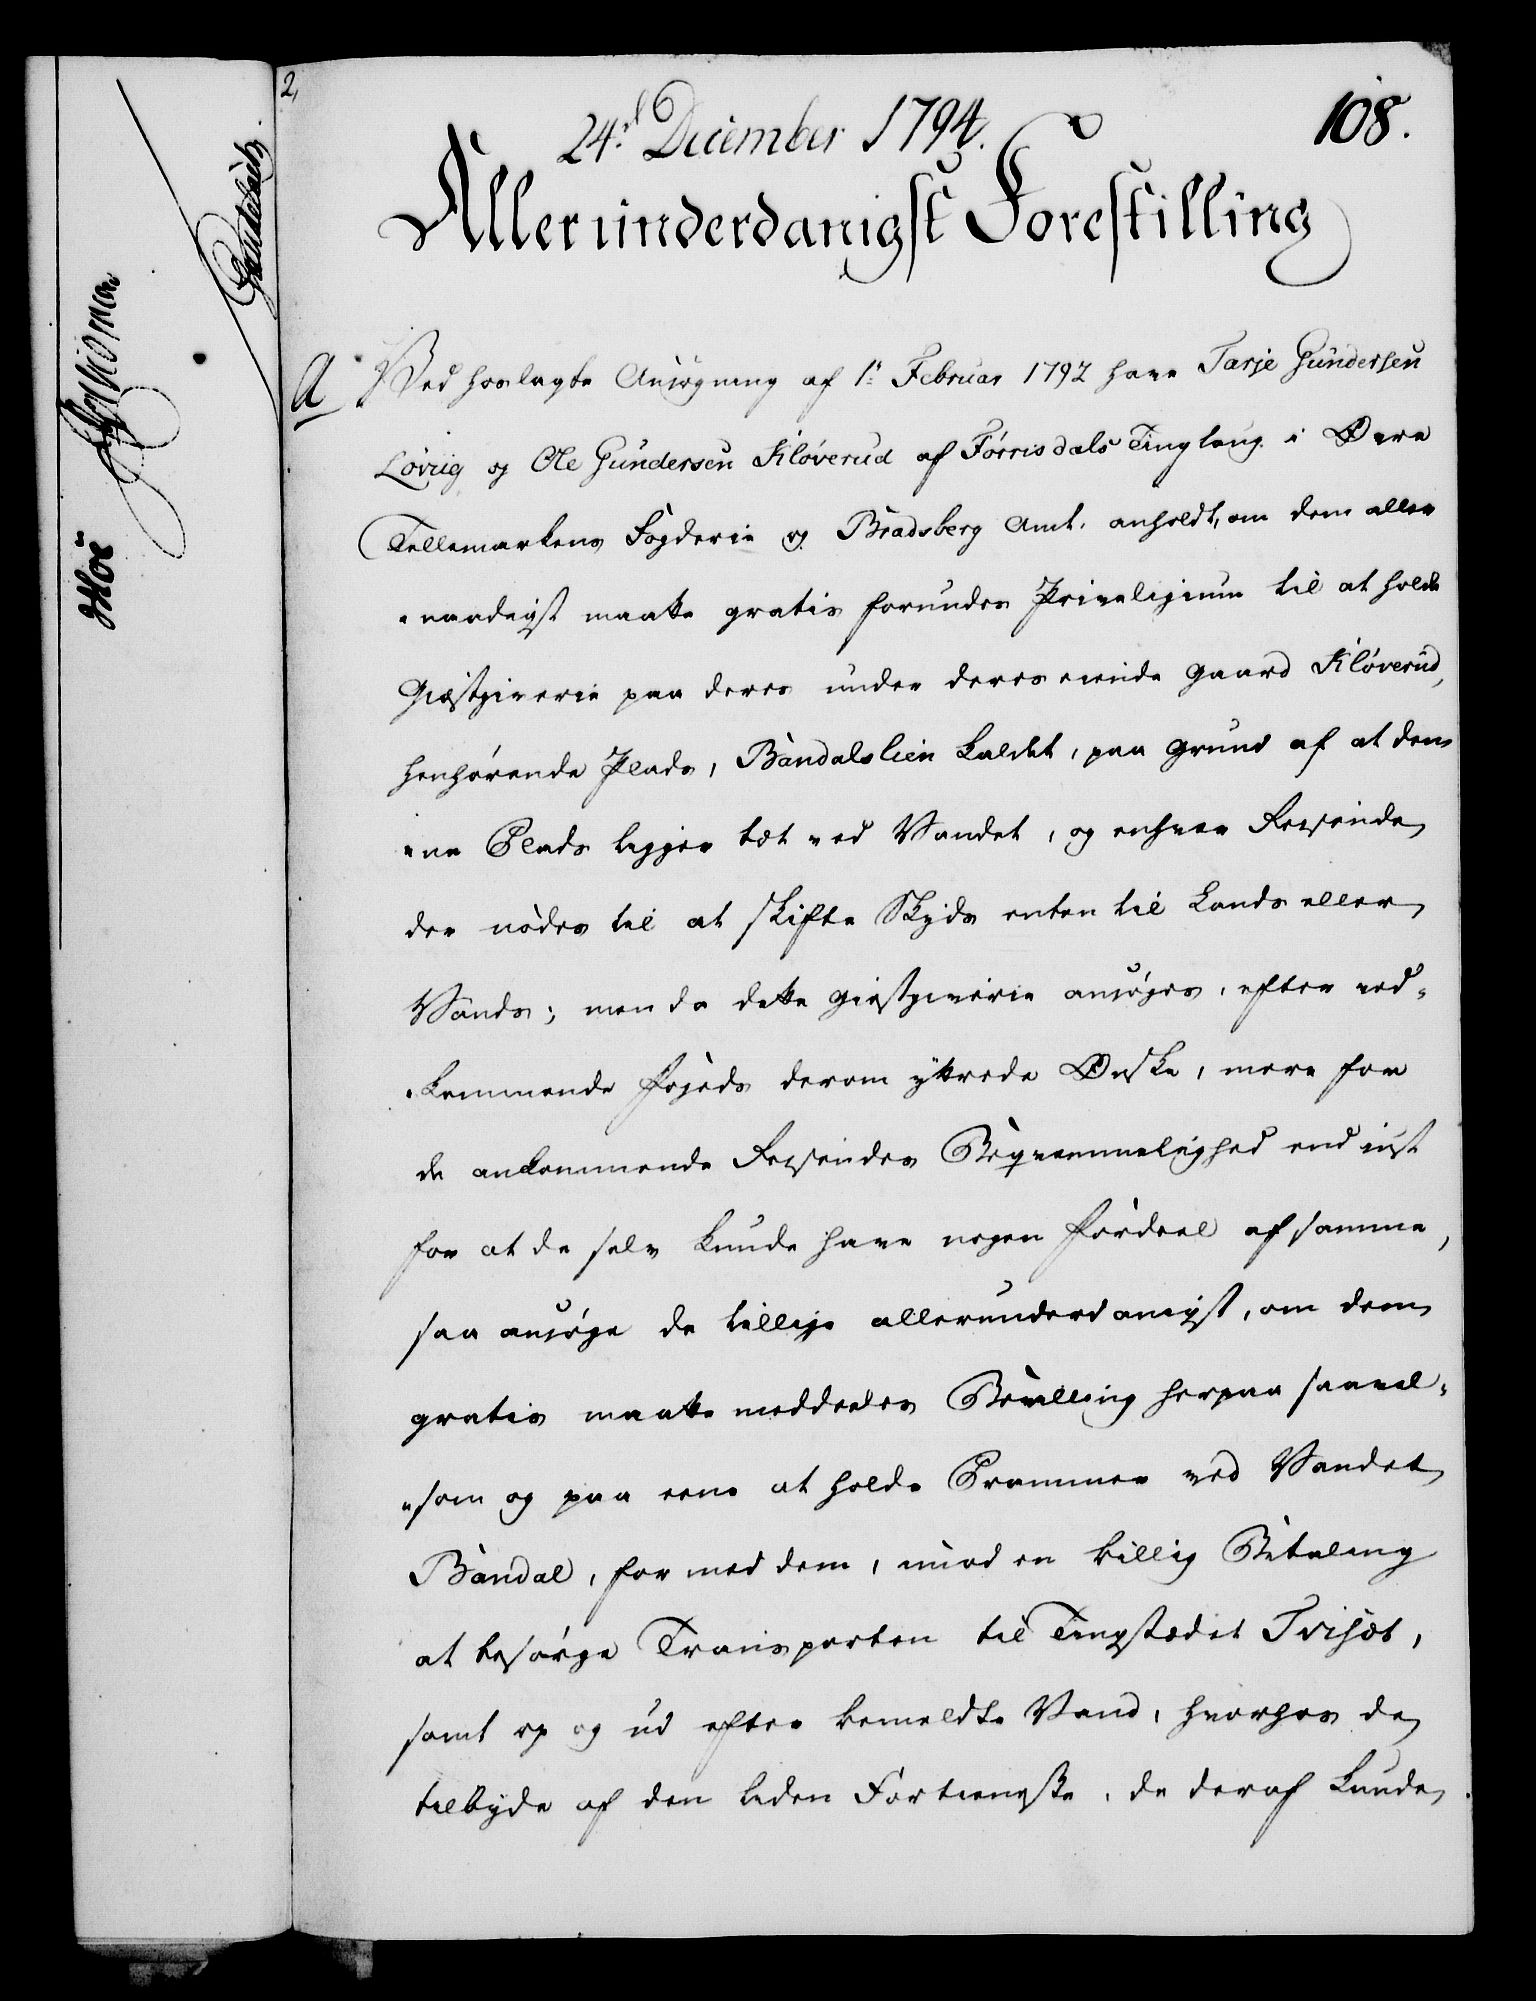 2,
24.d December 1794.
108.
Allerunderdanigst Forestilling
A
Ved hoslagte Ansøgning af 1.ste Februar 1792 have Tarje Gundersen
Løvrig og Ole Gundersen Kløverud af Førrisdals Tinglaug i Øvre
Tellemarkens Fogderie og Bradsberg Amt. anholdt, om dem aller
naadigst maatte gratis forundes Privelegium til at holde
Giæstgiverie paa deres under deres eiende Gaard Kløverud,
henhørende Plads, Bandalslien kaldet, paa Grund af at den
ne Plads ligger tæt ved Vandet, og enhver Reysende
der nødes til at skifte Skyds enten til Lands eller
Vands; men da dette Giestgiverie ansøges, efter ved-
kommende Fogeds derom yttrede Ønske, mere for
de ankommende Reysendes Beqvemmelighed end iust
for at de selv kunde have nogen Fordeel af samme,
saa ansøge de tillige allerunderdanigst, om dem
gratis maatte meddeeles Bevilling herpaa saavel-
som og paa eene at holde Prammer ved Vandet
Bandal, for med dem, imod en billig Betaling
at besørge Transporten til Tingstædet Trisæt,
samt op og ud efter bemeldte Vand, hvorhos de
tilbyde af den liden Fortieneste, de deraf kunde